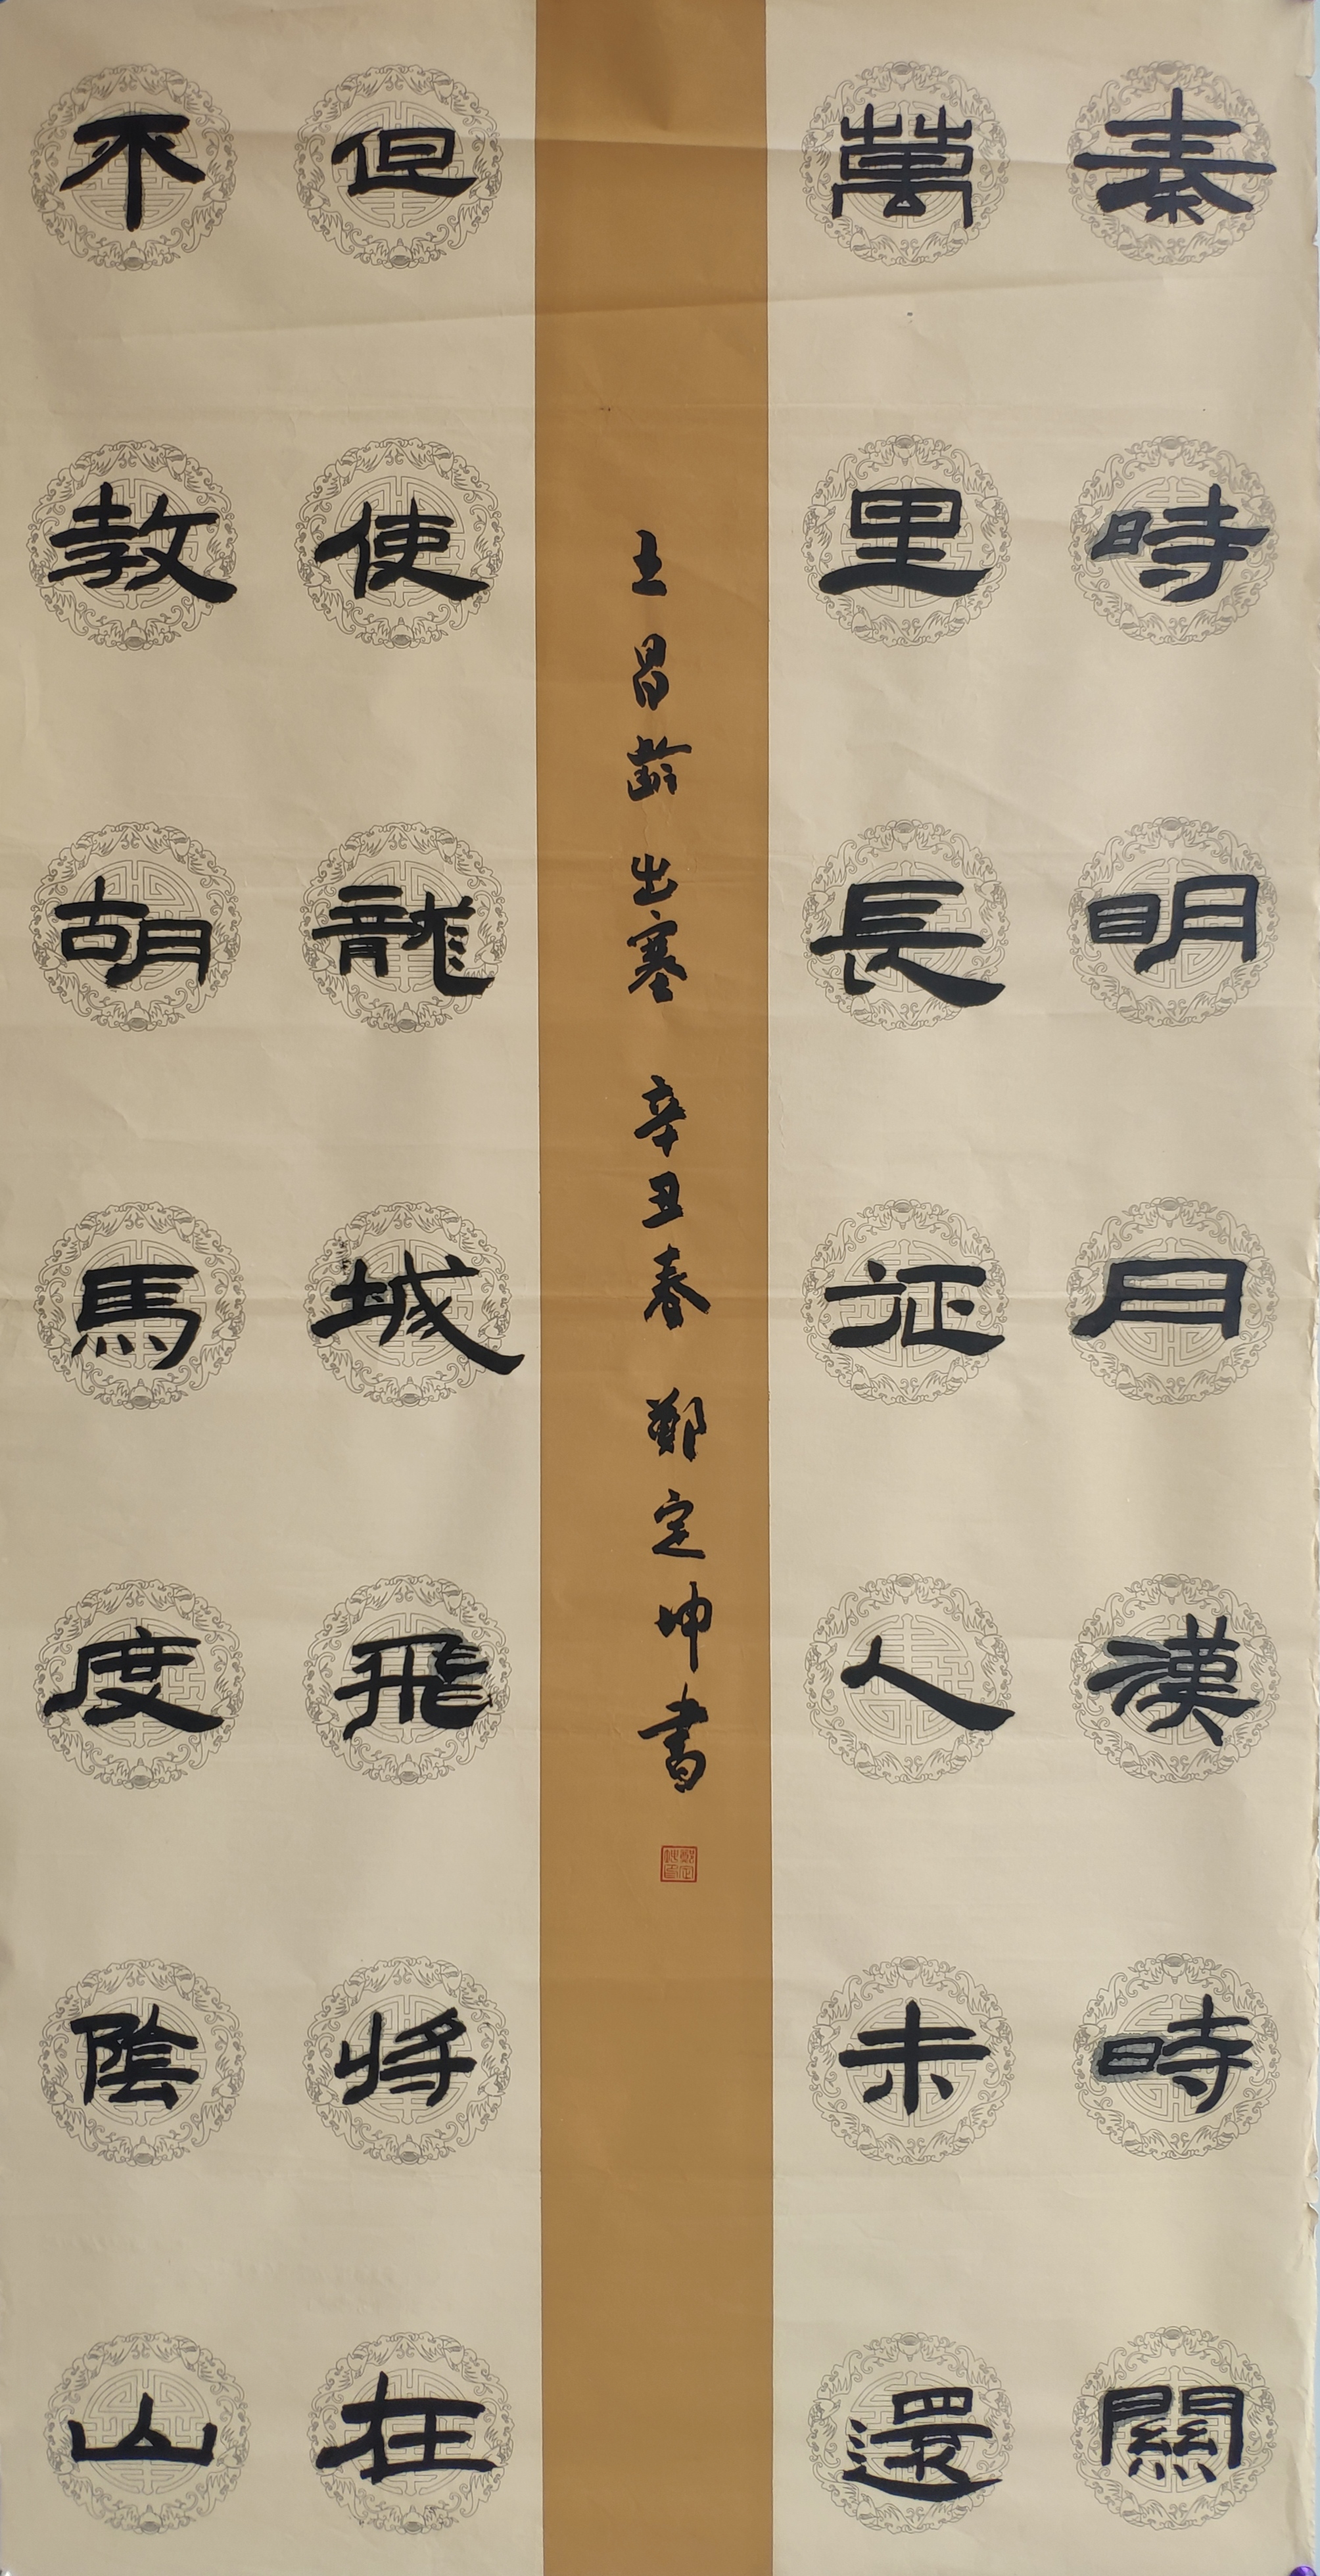 秦時明月漢時關
萬里長征人未還
王昌齡出塞 辛丑春 鄭定坤書
但使龍城飛將在
不教胡馬度陰山